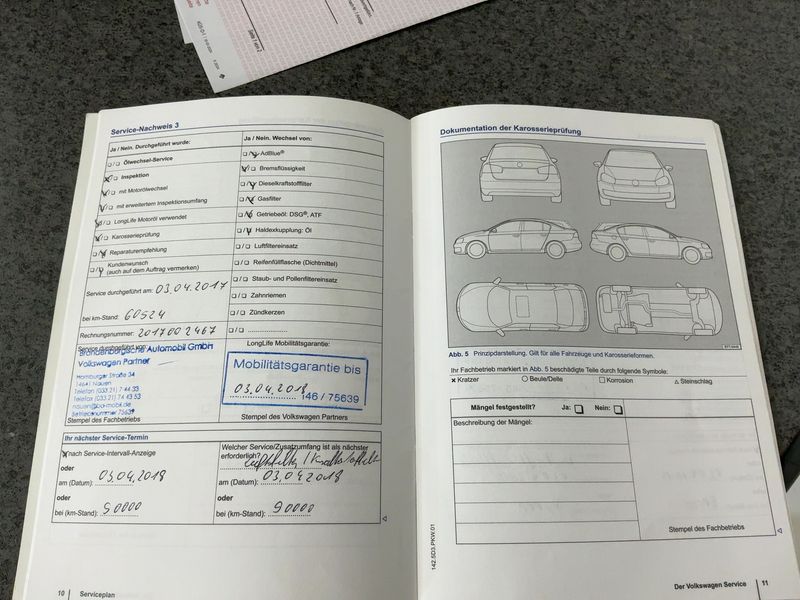 Seite 1 von 2
Service-Nachweis 3
Ja / Nein. Durchgeführt wurde:
Ölwechsel-Service
Inspektion
mit Motorölwechsel
mit erweitertem Inspektionsumfang
LongLife Motoröl verwendet
Karosserieprüfung
Reparaturempfehlung
Kundenwunsch
(auch auf dem Auftrag vermerken)
Service durchgeführt am: 03.04.2017
bei km-Stand: 60524
Rechnungsnummer: 2017002467
Service durchgeführt von:
Brandenburgische Automobil GmbH
Volkswagen Partner
Hamburger Straße 34
14641 Nauen
Telefon (033 21) 7 44 33
Telefax (033 21) 74 43 53
nauen@ba-mobil.de
Betriebsnummer 75639
Stempel des Fachbetriebs
Ja / Nein. Wechsel von:
AdBlue®
Bremsflüssigkeit
Dieselkraftstofffilter
Gasfilter
Getriebeöl: DSG®, ATF
Haldexkupplung: Öl
Luftfiltereinsatz
Reifenfüllflasche (Dichtmittel)
Staub- und Pollenfiltereinsatz
Zahnriemen
Zündkerzen
LongLife Mobilitätsgarantie:
Mobilitätsgarantie bis
03.04.2018
146 / 75639
Stempel des Volkswagen Partners
Ihr nächster Service-Termin
nach Service-Intervall-Anzeige
oder
am (Datum): 03.04.2018
oder
bei (km-Stand): 90000
Welcher Service/Zusatzumfang ist als nächster
erforderlich?
am (Datum): 03.04.2018
oder
bei (km-Stand): 90000
10 Serviceplan
Dokumentation der Karosserieprüfung
Abb. 5 Prinzipdarstellung. Gilt für alle Fahrzeuge und Karosserieformen.
Ihr Fachbetrieb markiert in Abb. 5 beschädigte Teile durch folgende Symbole:
x Kratzer ○ Beule/Delle □ Korrosion △ Steinschlag
Mängel festgestellt? Ja: Nein:
Beschreibung der Mängel:
Stempel des Fachbetriebs
142.5D3.PKW.01
Der Volkswagen Service 11